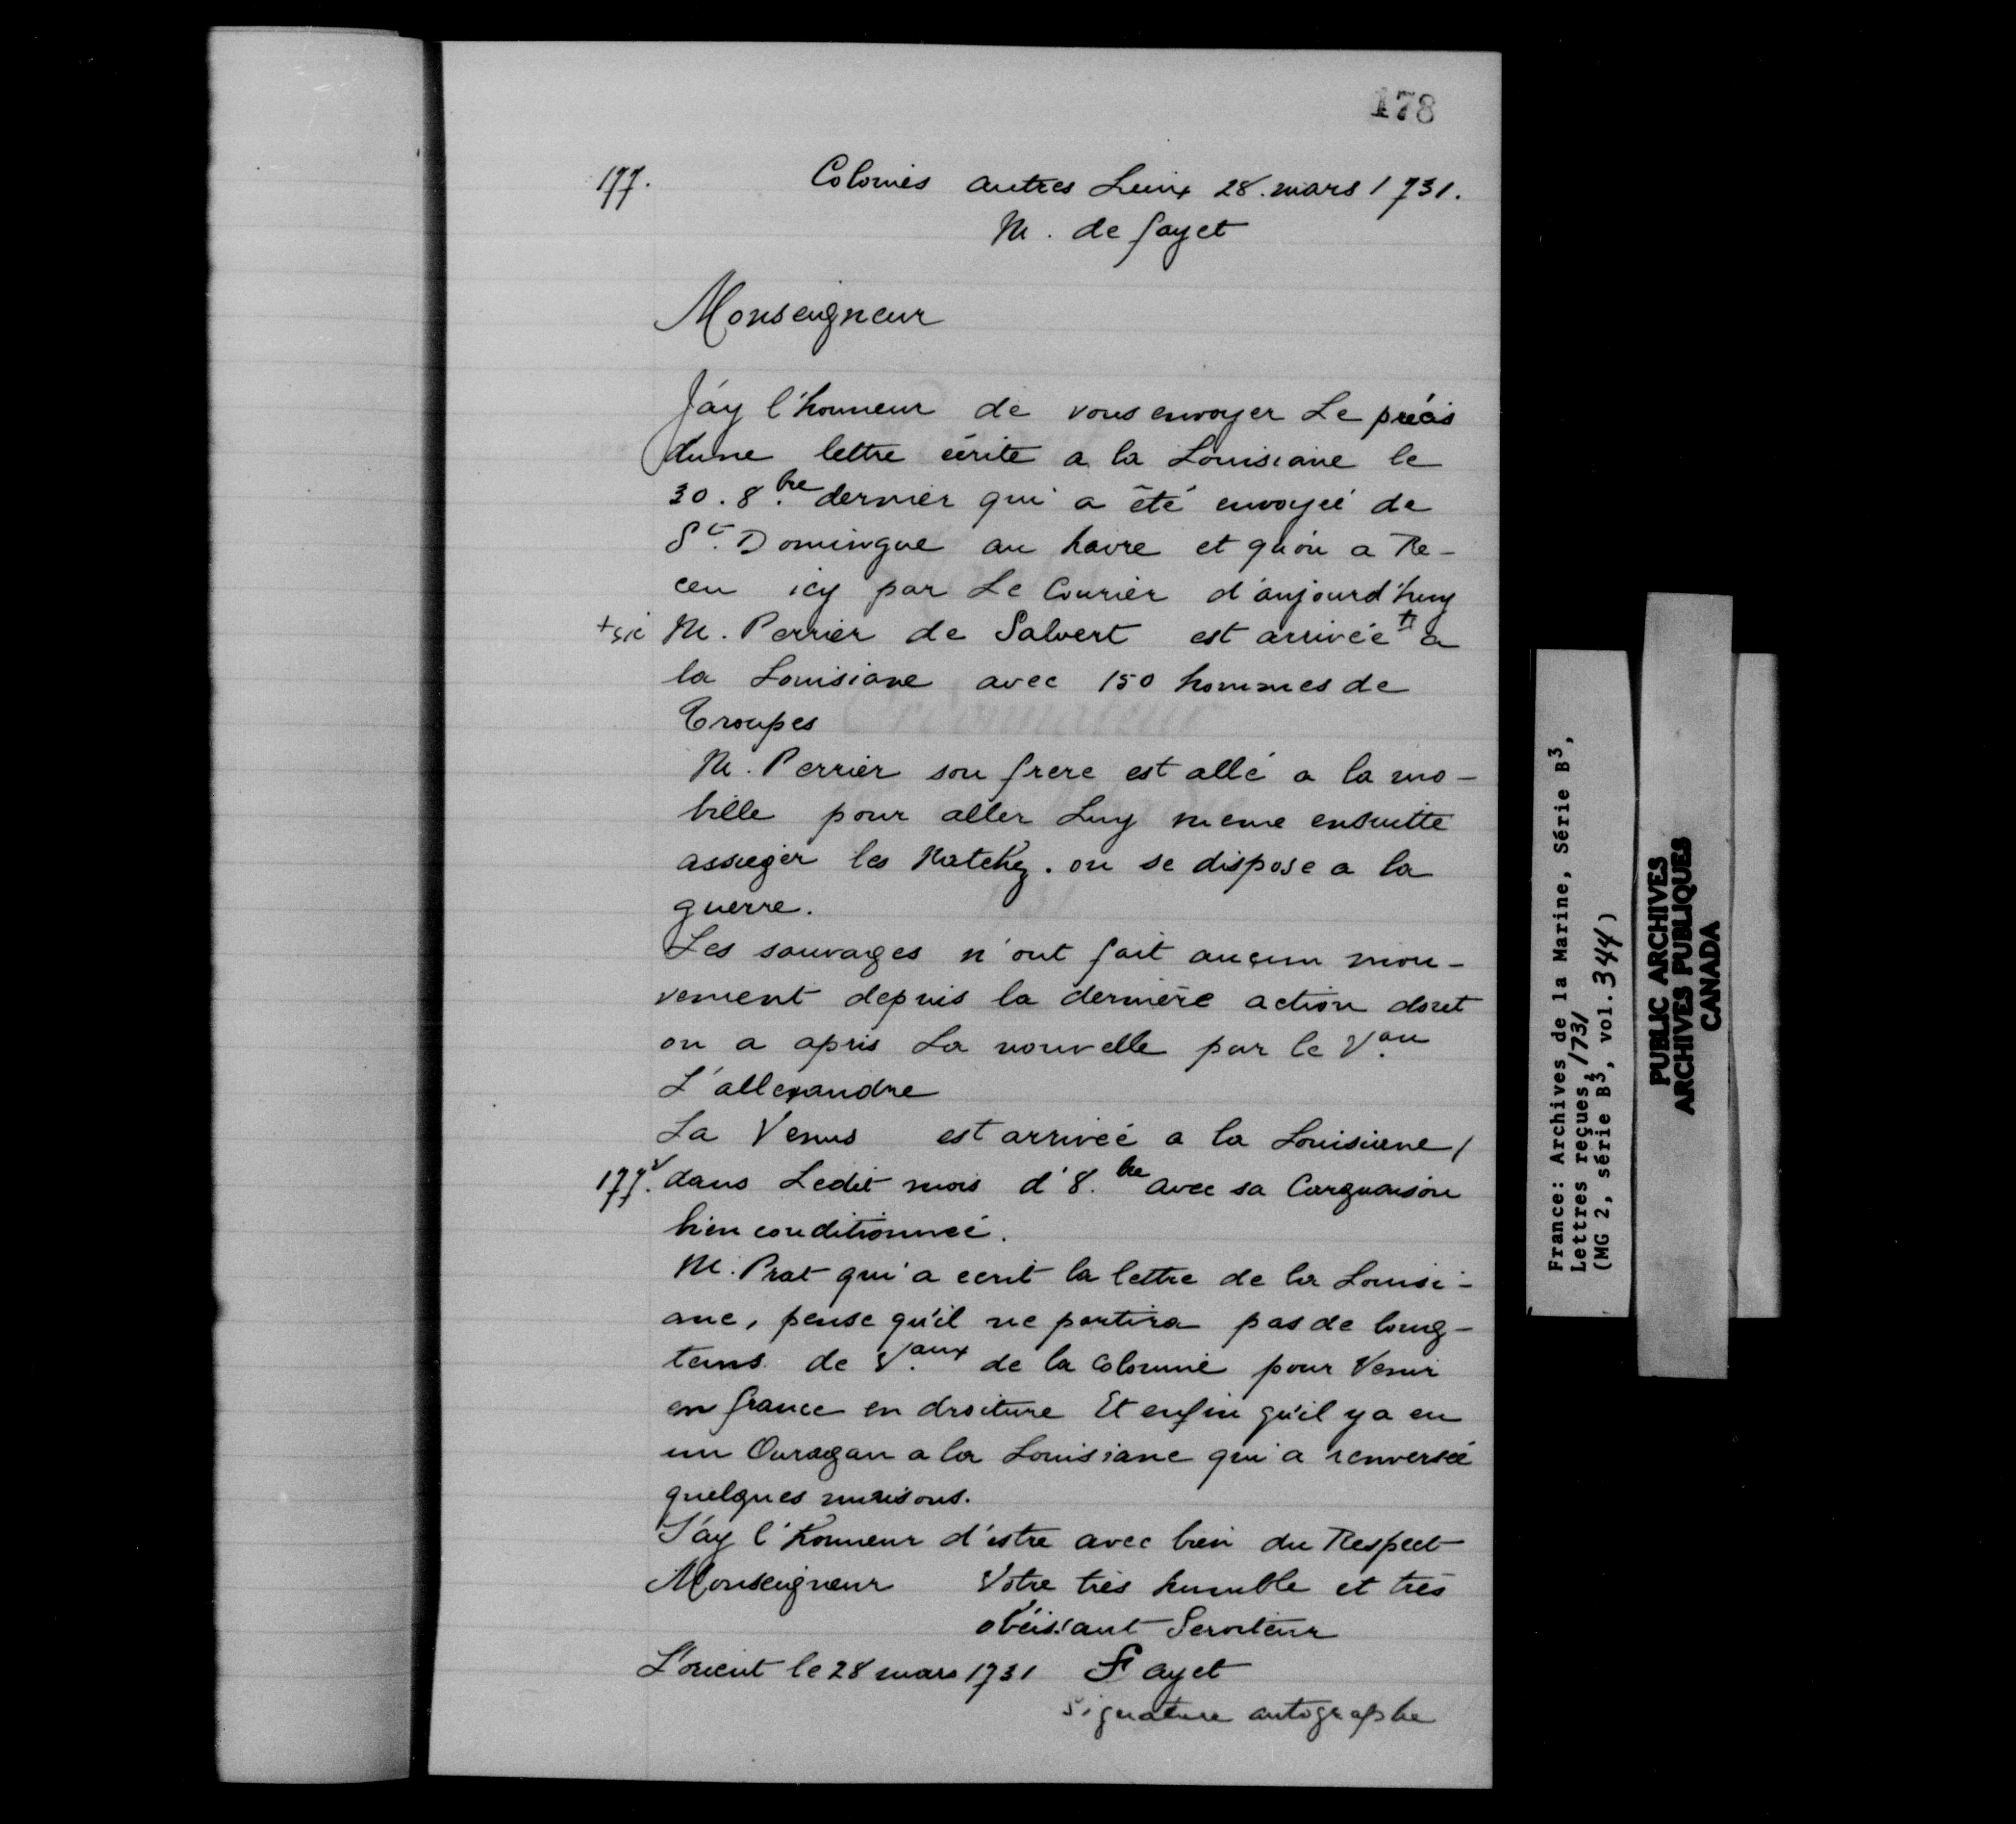 178
177. Colonies autres Lieux 28. mars 1731.
M. de fayet
Monseigneur
J'ay l'honneur de vous envoyer Le précis
dune lettre écrite a la Louisiane le
30. 8.bre dernier qui a été envoyée de
St. Domingue au havre et qu'on a Re-
ceu icy par Le Courier d'aujourd'huy
+ sic M. Perrier de Salvert est arrivée + a
la Louisiane avec 150 hommes de
Troupes
M. Perrier son frere est allé a la mo-
bille pour aller Luy meme ensuitte
assieger les Natchez. on se dispose a la
guerre.
Les sauvages n'ont fait aucun mou-
vement depuis la derniere action dont
on a apris La nouvelle par le V.au
L'allexandre
La Venus est arrivée a la Louisiane /
177.v dans Ledit mois d'8.bre avec sa Carguaison
bien conditionnée.
M. Prat qui a ecrit la lettre de la Louisi-
ane, pense qu'il ne partira pas de long-
tems de V.aux de la Colonie pour Venir
en france en droiture Et enfin qu'il y a eu
un Ouragan a la Louisiane qui a renversée
quelques maisons.
J'ay l'honneur d'estre avec bien du Respect
Monseigneur Votre très humble et très
obéissant Serviteur
L'orient le 28 mars 1731 Fayet
Signature autographe
France: Archives de la Marine, Série B3,
Lettres reçues, 1731
(MG 2, série B3, vol. 344)
PUBLIC ARCHIVES
ARCHIVES PUBLIQUES
CANADA